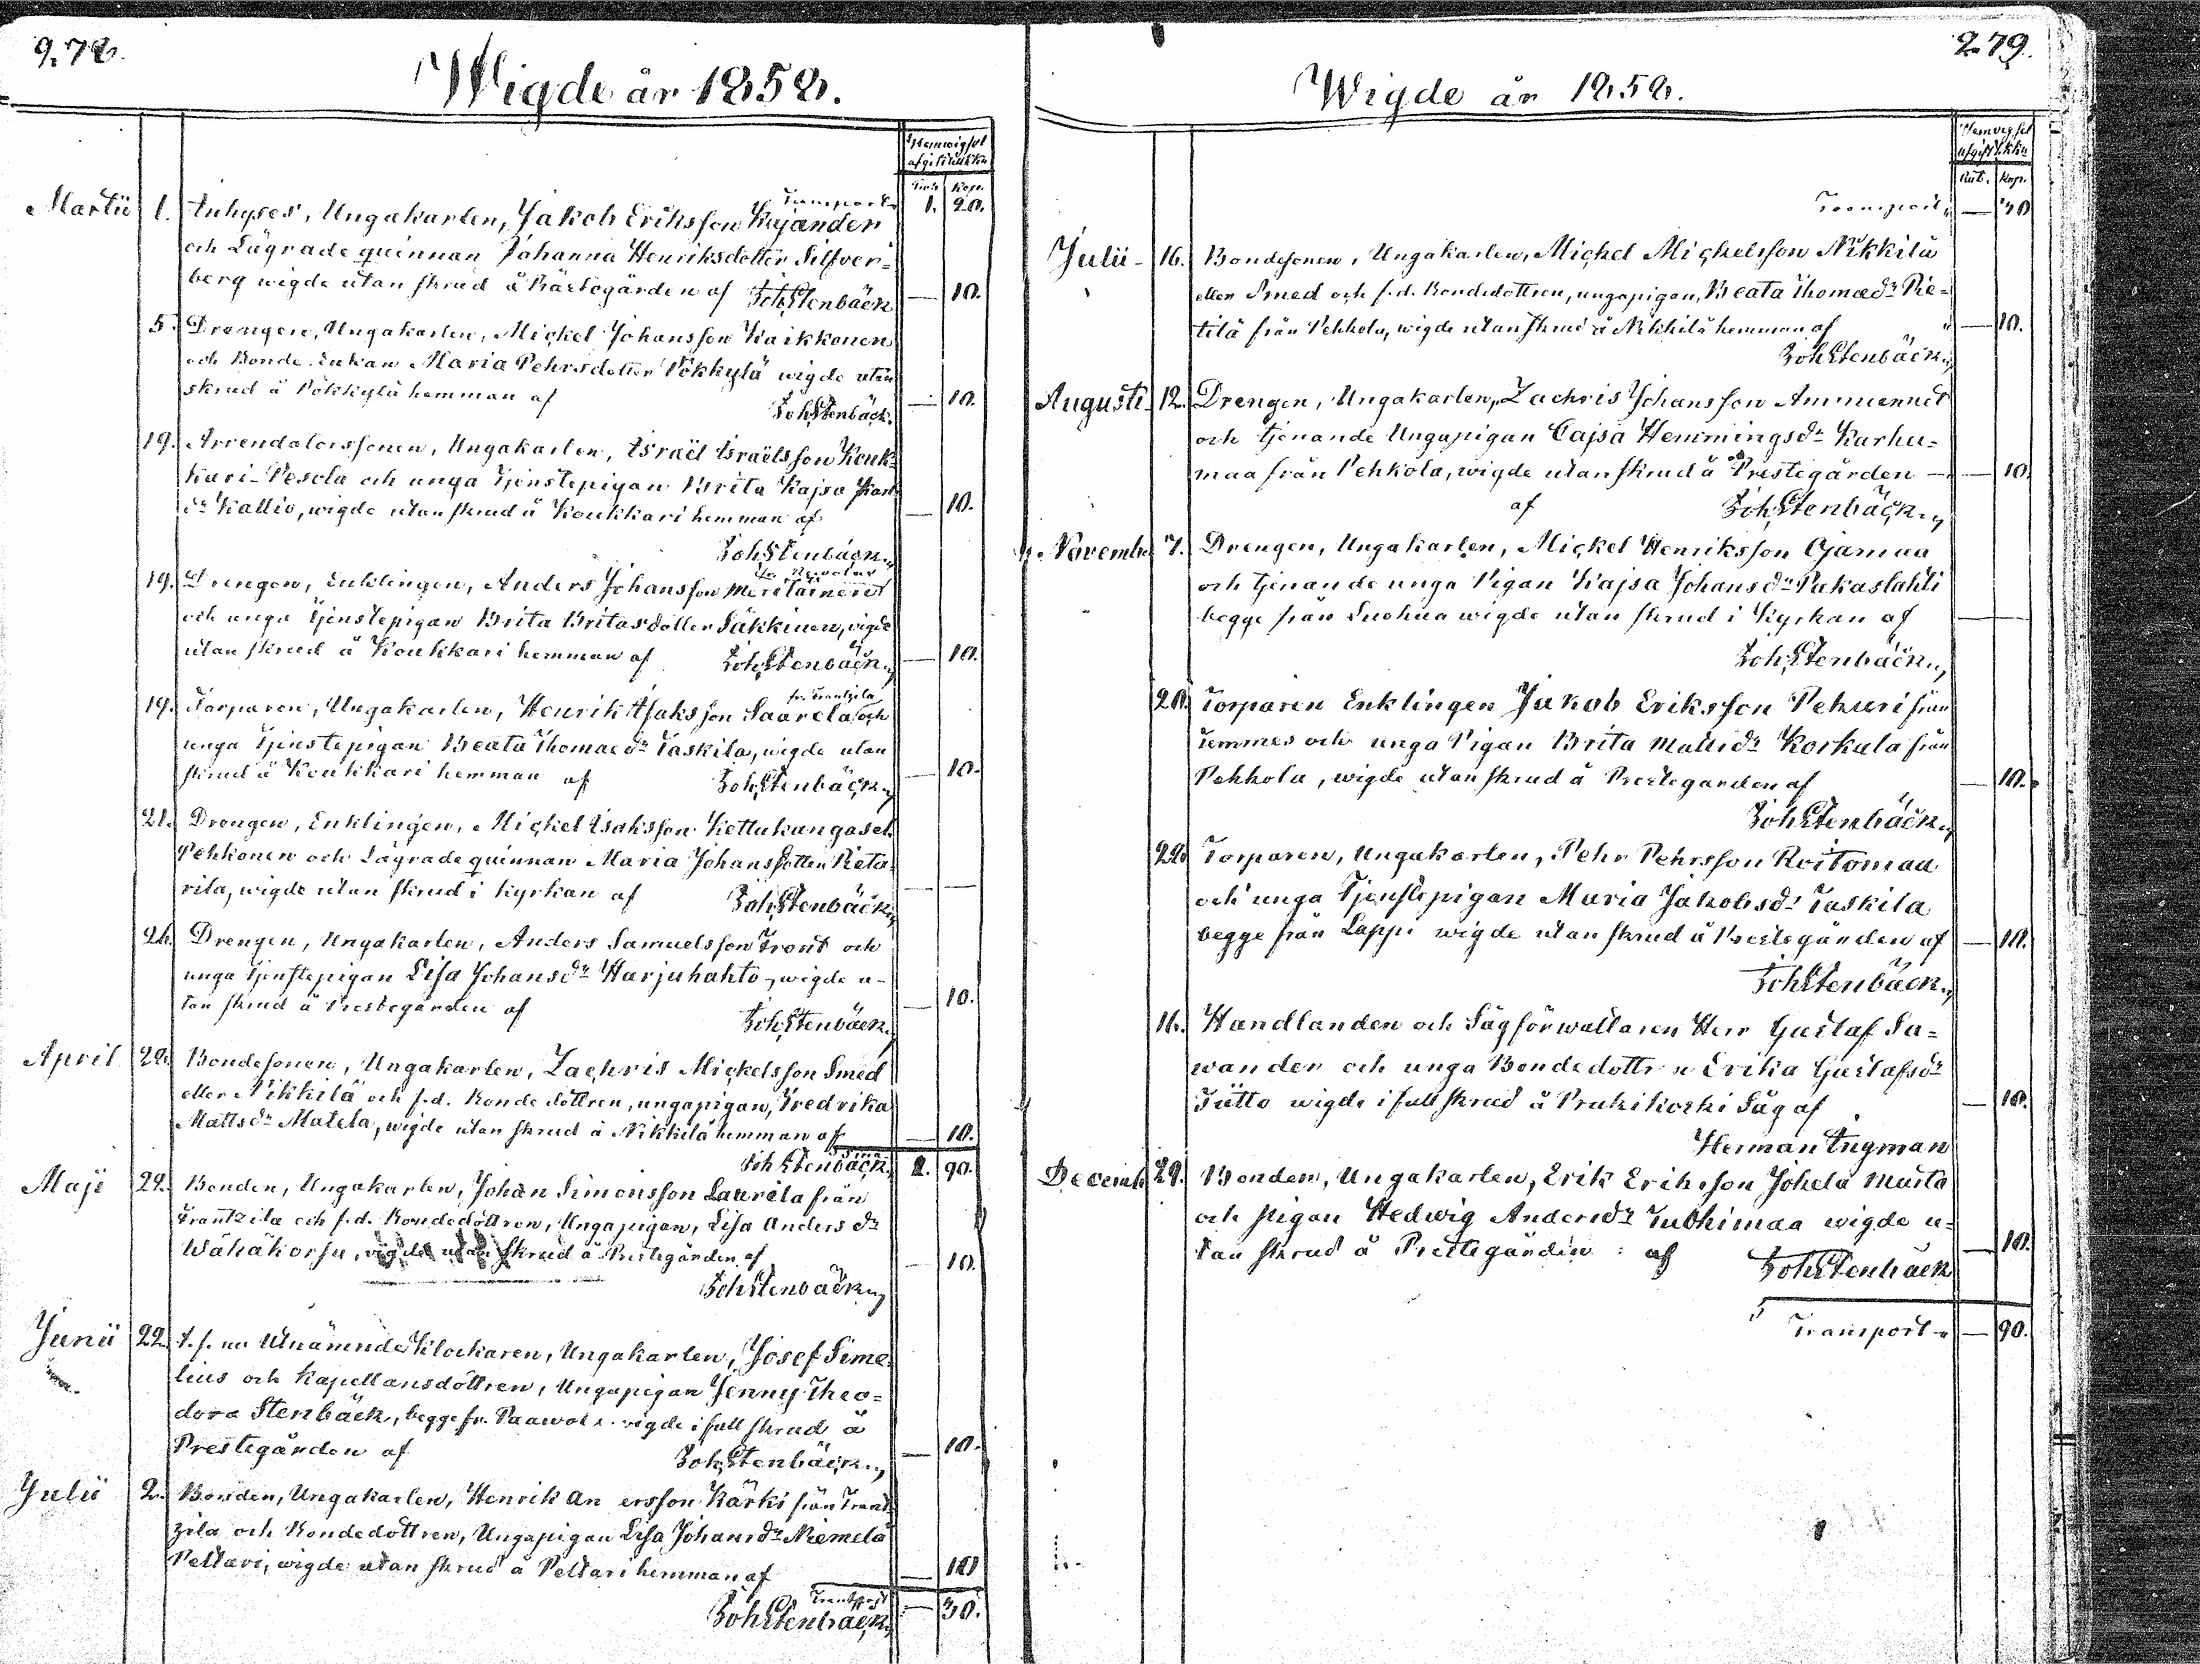 278.
Wigde år 1858.
Hemwigsel
afgift till kka
Rub. Kop.
Transport 1. 20.
Martii 1. Inhyses, Ungakarlen, Jakob Eriksson Kajander
och Lägrade quinnan Johanna Henriksdotter Silfver-
berg wigde utan skrud å Prästegården af JohStenbäck — 10.
5. Drengen, Ungakarlen, Mickel Johansson Kaikkonen
och Bonde Enkan Maria Pehrsdotter Pökkylä wigde utan
skrud å Pökkylä hemman af JohStenbäck. — 10.
19. Arrendatorssonen, Ungakarlen, Israël Israëlsson Kouk-
kari-Pesola och unga Tjenstepigan Brita Kajsa
dr Kallio, wigde utan skrud å Koukkari hemman af — 10.
JohStenbäck.
19. Drengen, Enklingen, Anders Johansson Meriläinen
och unga Tjenstepigan Brita Britasdotter Säkkinen, vigde
utan skrud å Koukkari hemman af JohStenbäck — 10.
fr. Frantzila
19. Torparen, Ungakarlen, Henrik Isaksson Saarela och
unga Tjenstepigan Beata Thomae dr Taskila, wigde utan
skrud å Koukkari hemman af JohStenbäck — 10.
21. Drengen, Enklingen, Mickel Isaksson Kettukangas el.
Pehkonen och Lägrade quinnan Maria Johansdotter Pieta-
rila, wigde utan skrud i kyrkan af JohStenbäck — —
26. Drengen, Ungakarlen, Anders Samuelsson Trout och
unga Tjenstepigan Lisa Johansdr Harjuhahto, wigde u-
tan skrud å Prestegården af JohStenbäck — 10.
April 22. Bondesonen, Ungakarlen, Zachris Mickelsson Smed
eller Nikkilä och f.d. Bonde dottren, ungapigan, Fredrika
Mattsdr Matela, wigde utan skrud å Nikkilä hemman af — 10.
JohStenbäck 1. 90.
Maji 22. Bonden, Ungakarlen, Johan Simonsson Laurila från
Frantzila och f.d. Bondedottren, Ungapigan, Lisa Anders dr
Wähäkorju, wigde utan skrud å Prestegården af — 10.
JohStenbäck
Junii 22. t.f. Utnämnde Klockaren, Ungakarlen, Josef Sime-
lius och Kapellansdottren, Ungapigan Jenny Theo-
dora Stenbäck, begge fr. Paawola wigde i full skrud å
Prestegården af JohStenbäck. — 10.
Julii 2. Bonden, Ungakarlen, Henrik Andersson Kärki från Frant-
zila och Bondedottren, Ungapigan Lisa Johansdr Niemelä
Peltari, wigde utan skrud å Peltari hemman af — 10
Transport
JohStenbäck — 30.
279.
Wigde år 1858.
Hemvigsel
afgift t. kka
Rub. Kop.
Transport — 30
Julii 16. Bondesonen, Ungakarlen, Mickel Mickelsson Nikkilä
eller Smed och f.d. Bondedottren, ungapigan, Beata Thomædr Pie-
tilä från Pehkola, wigde utan skrud å Nikkilä hemman af — 10.
JohStenbäck.
Augusti 12. Drengen, Ungakarlen, Zachris Johansson Ammunnet
och tjenande Ungapigan Cajsa Hemmingsdr Karhu-
maa från Pehkola, wigde utan skrud å Prestegården — 10
af JohStenbäck.
Novembr 7. Drengen, Ungakarlen, Mickel Henriksson Ojamaa
och tjenande unga Pigan Kajsa Johansdr Pakaslahti
begge från Luohua wigde utan skrud i Kyrkan af —
JohStenbäck.
20. Torparen Enklingen Jakob Eriksson Pekuri från
Temmes och unga Pigan Brita Mattsdr Korkala från
Pehkola, wigde utan skrud å Prestegården af — 10.
JohStenbäck
22. Torparen, Ungakarlen, Pehr Pehrsson Roitomaa
och unga Tjenstepigan Maria Jakobsdr Taskila
begge från Lappi wigde utan skrud å Prestegården af — 10.
JohStenbäck.
16. Handlanden och Sågförwaltaren Herr Gustaf Sa-
wander och unga Bondedottren Erika Gustafsdr
Tütto wigde i full skrud å Pruhikoski Såg af — 10.
Herman Ingman
Decembr 29. Bonden, Ungakarlen, Erik Eriksson Johela Marta
och pigan Hedwig Andersdr Tuohimaa wigde u-
tan skrud å Prestegården af JohStenbäck — 10.
Transport — 90.